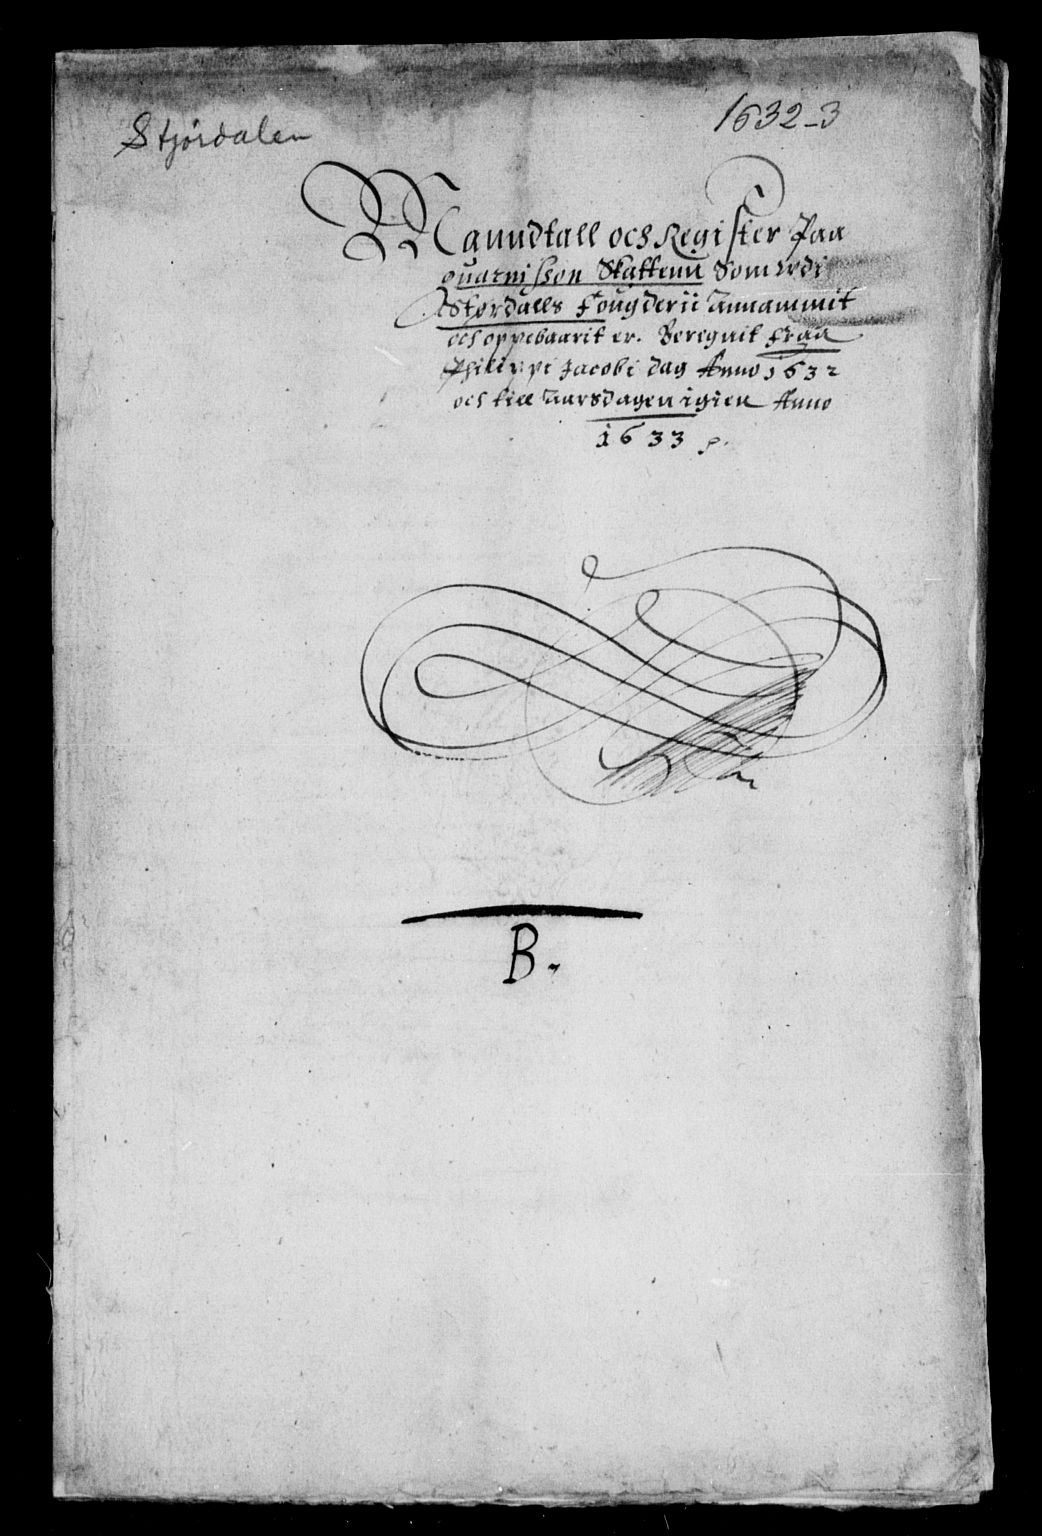 Stjördalen
1632-3
Manndtall och Register Paa
quarnisson Skattenn Som udi
Stordalls Fougderii Annammit
och oppebaarit er. Beregnit Fraa
Philippi Jacobi dag Anno 1632
och till Aarsdagen igien Anno
1633
B.